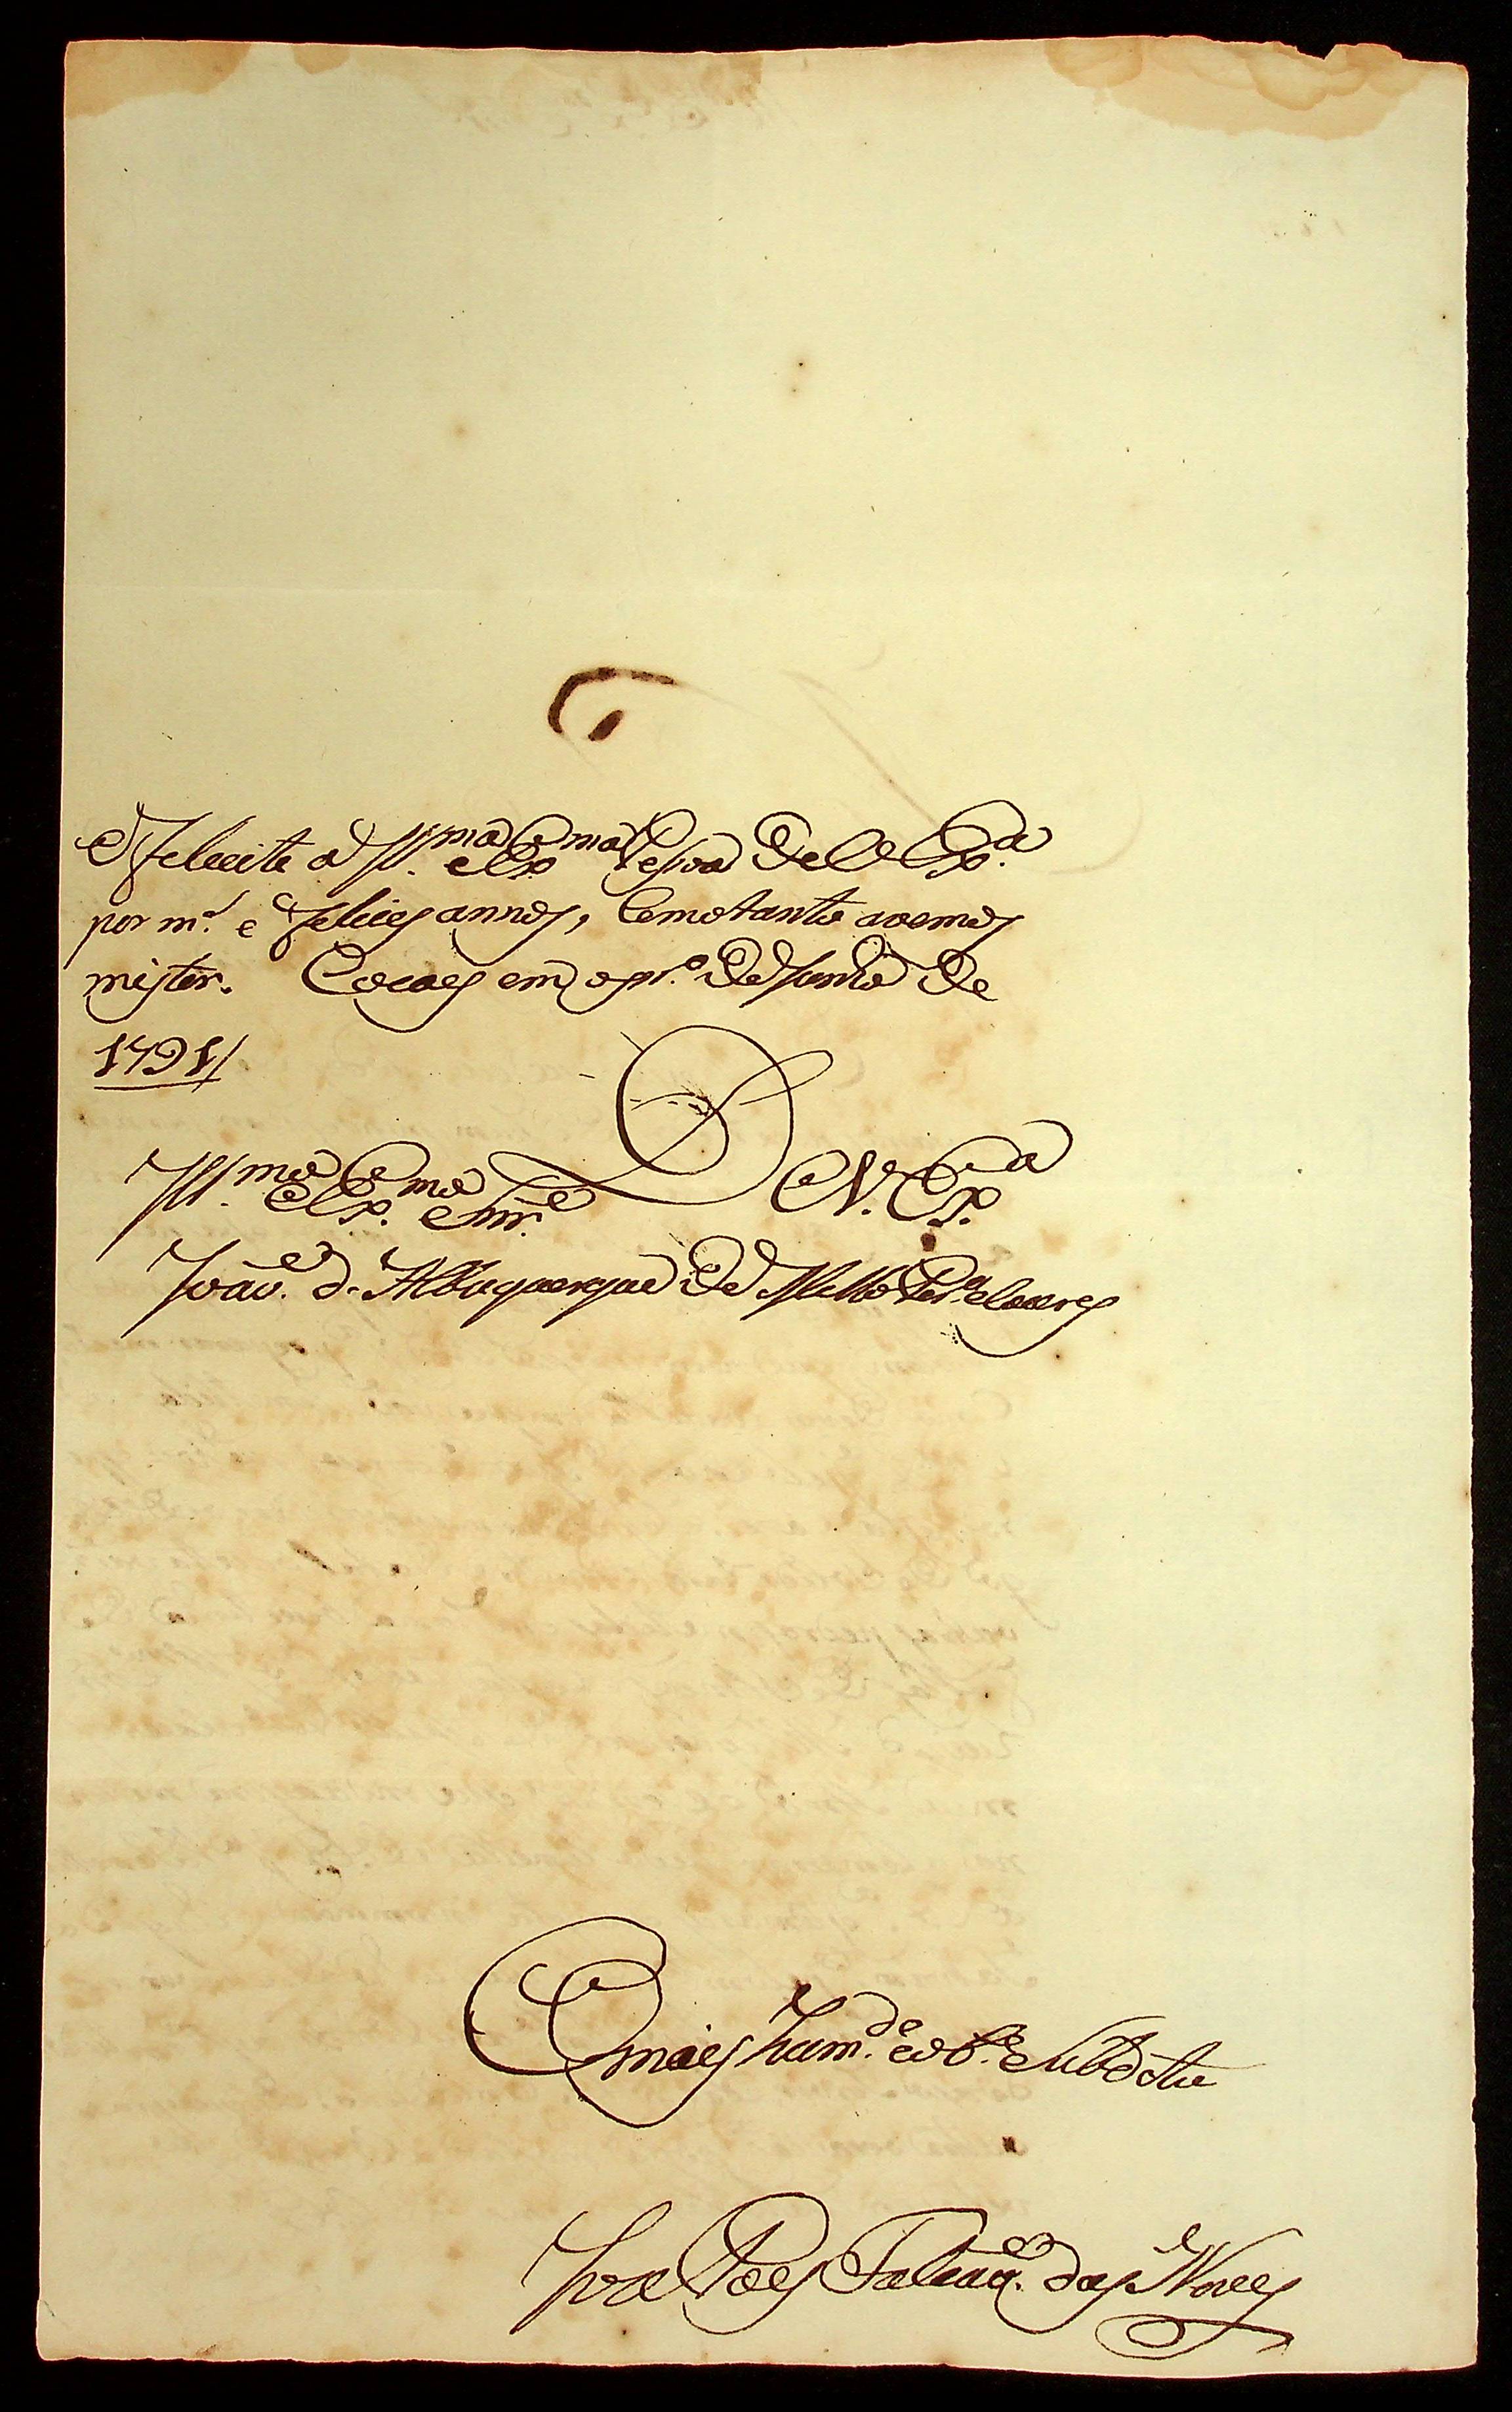 e Felecite a Ill.ma e Ex.ma Pesoa de V. Ex.a
por m.s e Felices annos, Como tanto avemos
mister. Cocaes em o pr.o de Junho de
1791
De V. Ex.a
Ill.mo e Ex.mo Snr.
João d. Albuquerque de Mello Per.a e Caceres
O mais hum.de e ob.e Subdito
Jose Paes Falcão das Neves